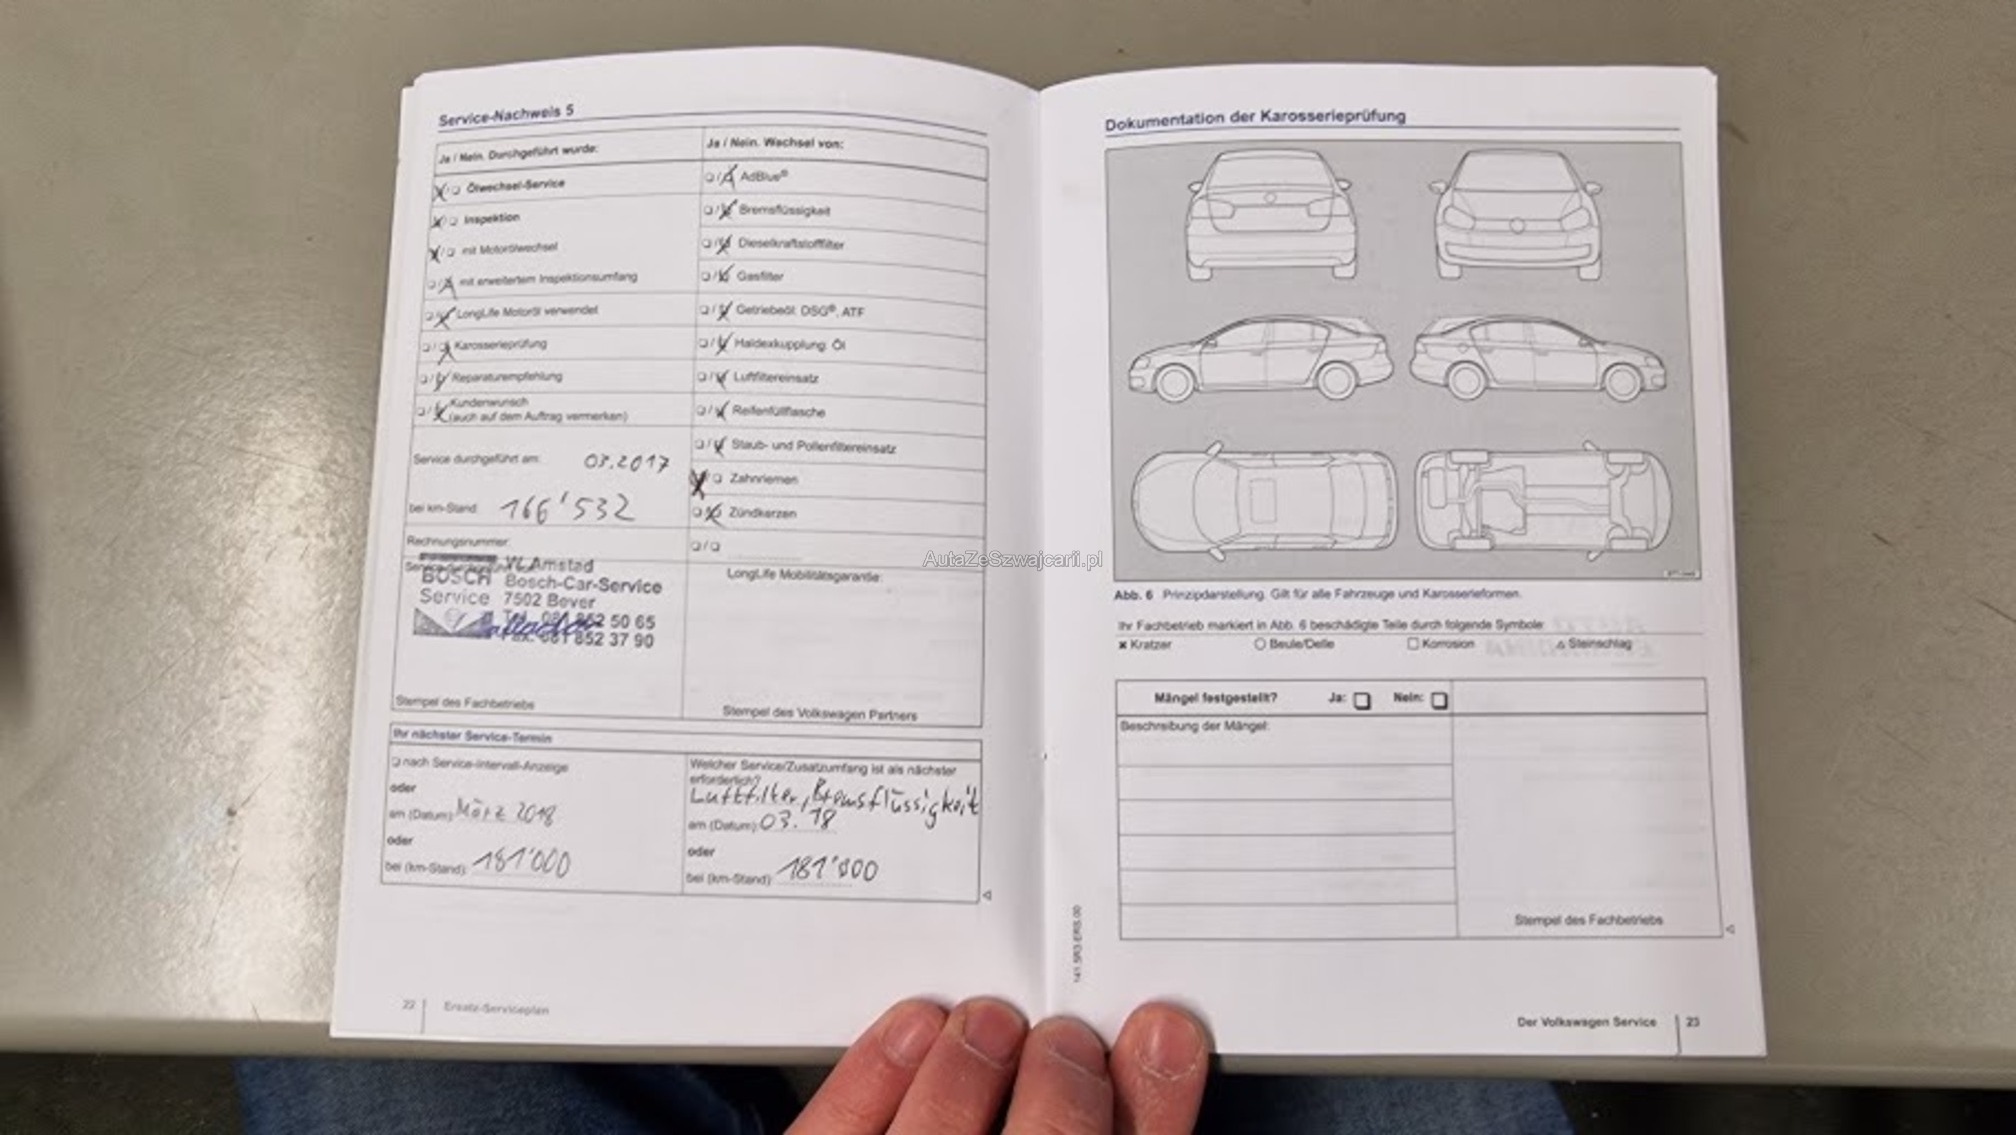 Service-Nachweis 5
Ja / Nein. Durchgeführt wurde:
Ölwechsel-Service
Inspektion
mit Motorölwechsel
mit erweitertem Inspektionsumfang
LongLife Motoröl verwendet
Karosserieprüfung
Reparaturempfehlung
Kundenwunsch
(auch auf dem Auftrag vermerken)
Service durchgeführt am: 03.2017
bei km-Stand: 166'532
Rechnungsnummer:
BOSCH
Service
Amstad
Bosch-Car-Service
7502 Bever
Tel. 081 852 50 65
Fax. 081 852 37 90
Stempel des Fachbetriebs
Ja / Nein. Wechsel von:
AdBlue®
Bremsflüssigkeit
Dieselkraftstofffilter
Gasfilter
Getriebeöl: DSG®, ATF
Haldexkupplung: Öl
Luftfiltereinsatz
Reifenfüllflasche
Staub- und Pollenfiltereinsatz
Zahnriemen
Zündkerzen
LongLife Mobilitätsgarantie:
Stempel des Volkswagen Partners
Ihr nächster Service-Termin
nach Service-Intervall-Anzeige
oder
am (Datum): März 2018
oder
bei (km-Stand): 181'000
Welcher Service/Zusatzumfang ist als nächster
erforderlich?
Luftfilter, Bremsflüssigkeit
am (Datum): 03.18
oder
bei (km-Stand): 181'000
22 Ersatz-Serviceplan
Dokumentation der Karosserieprüfung
AutaZeSzwajcarii.pl
Abb. 6 Prinzipdarstellung. Gilt für alle Fahrzeuge und Karosserieformen.
Ihr Fachbetrieb markiert in Abb. 6 beschädigte Teile durch folgende Symbole:
Kratzer Beule/Delle Korrosion Steinschlag
Mängel festgestellt? Ja: Nein:
Beschreibung der Mängel:
Stempel des Fachbetriebs
Der Volkswagen Service 23